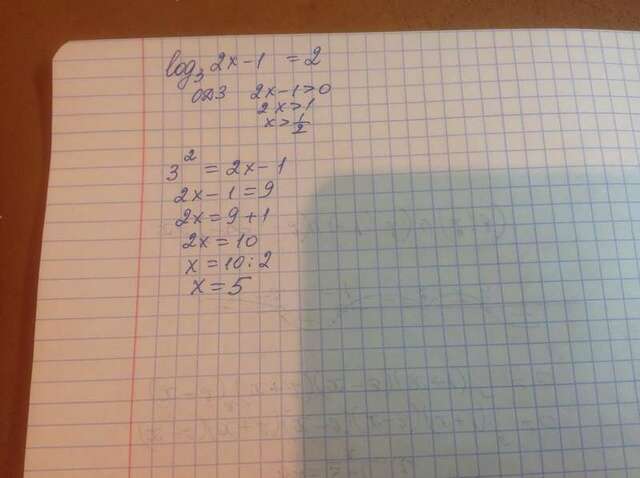 log₃ 2x-1 = 2
ОДЗ 2x-1>0
2x>1
x>1/2
3² = 2x-1
2x-1=9
2x=9+1
2x=10
x=10:2
x=5